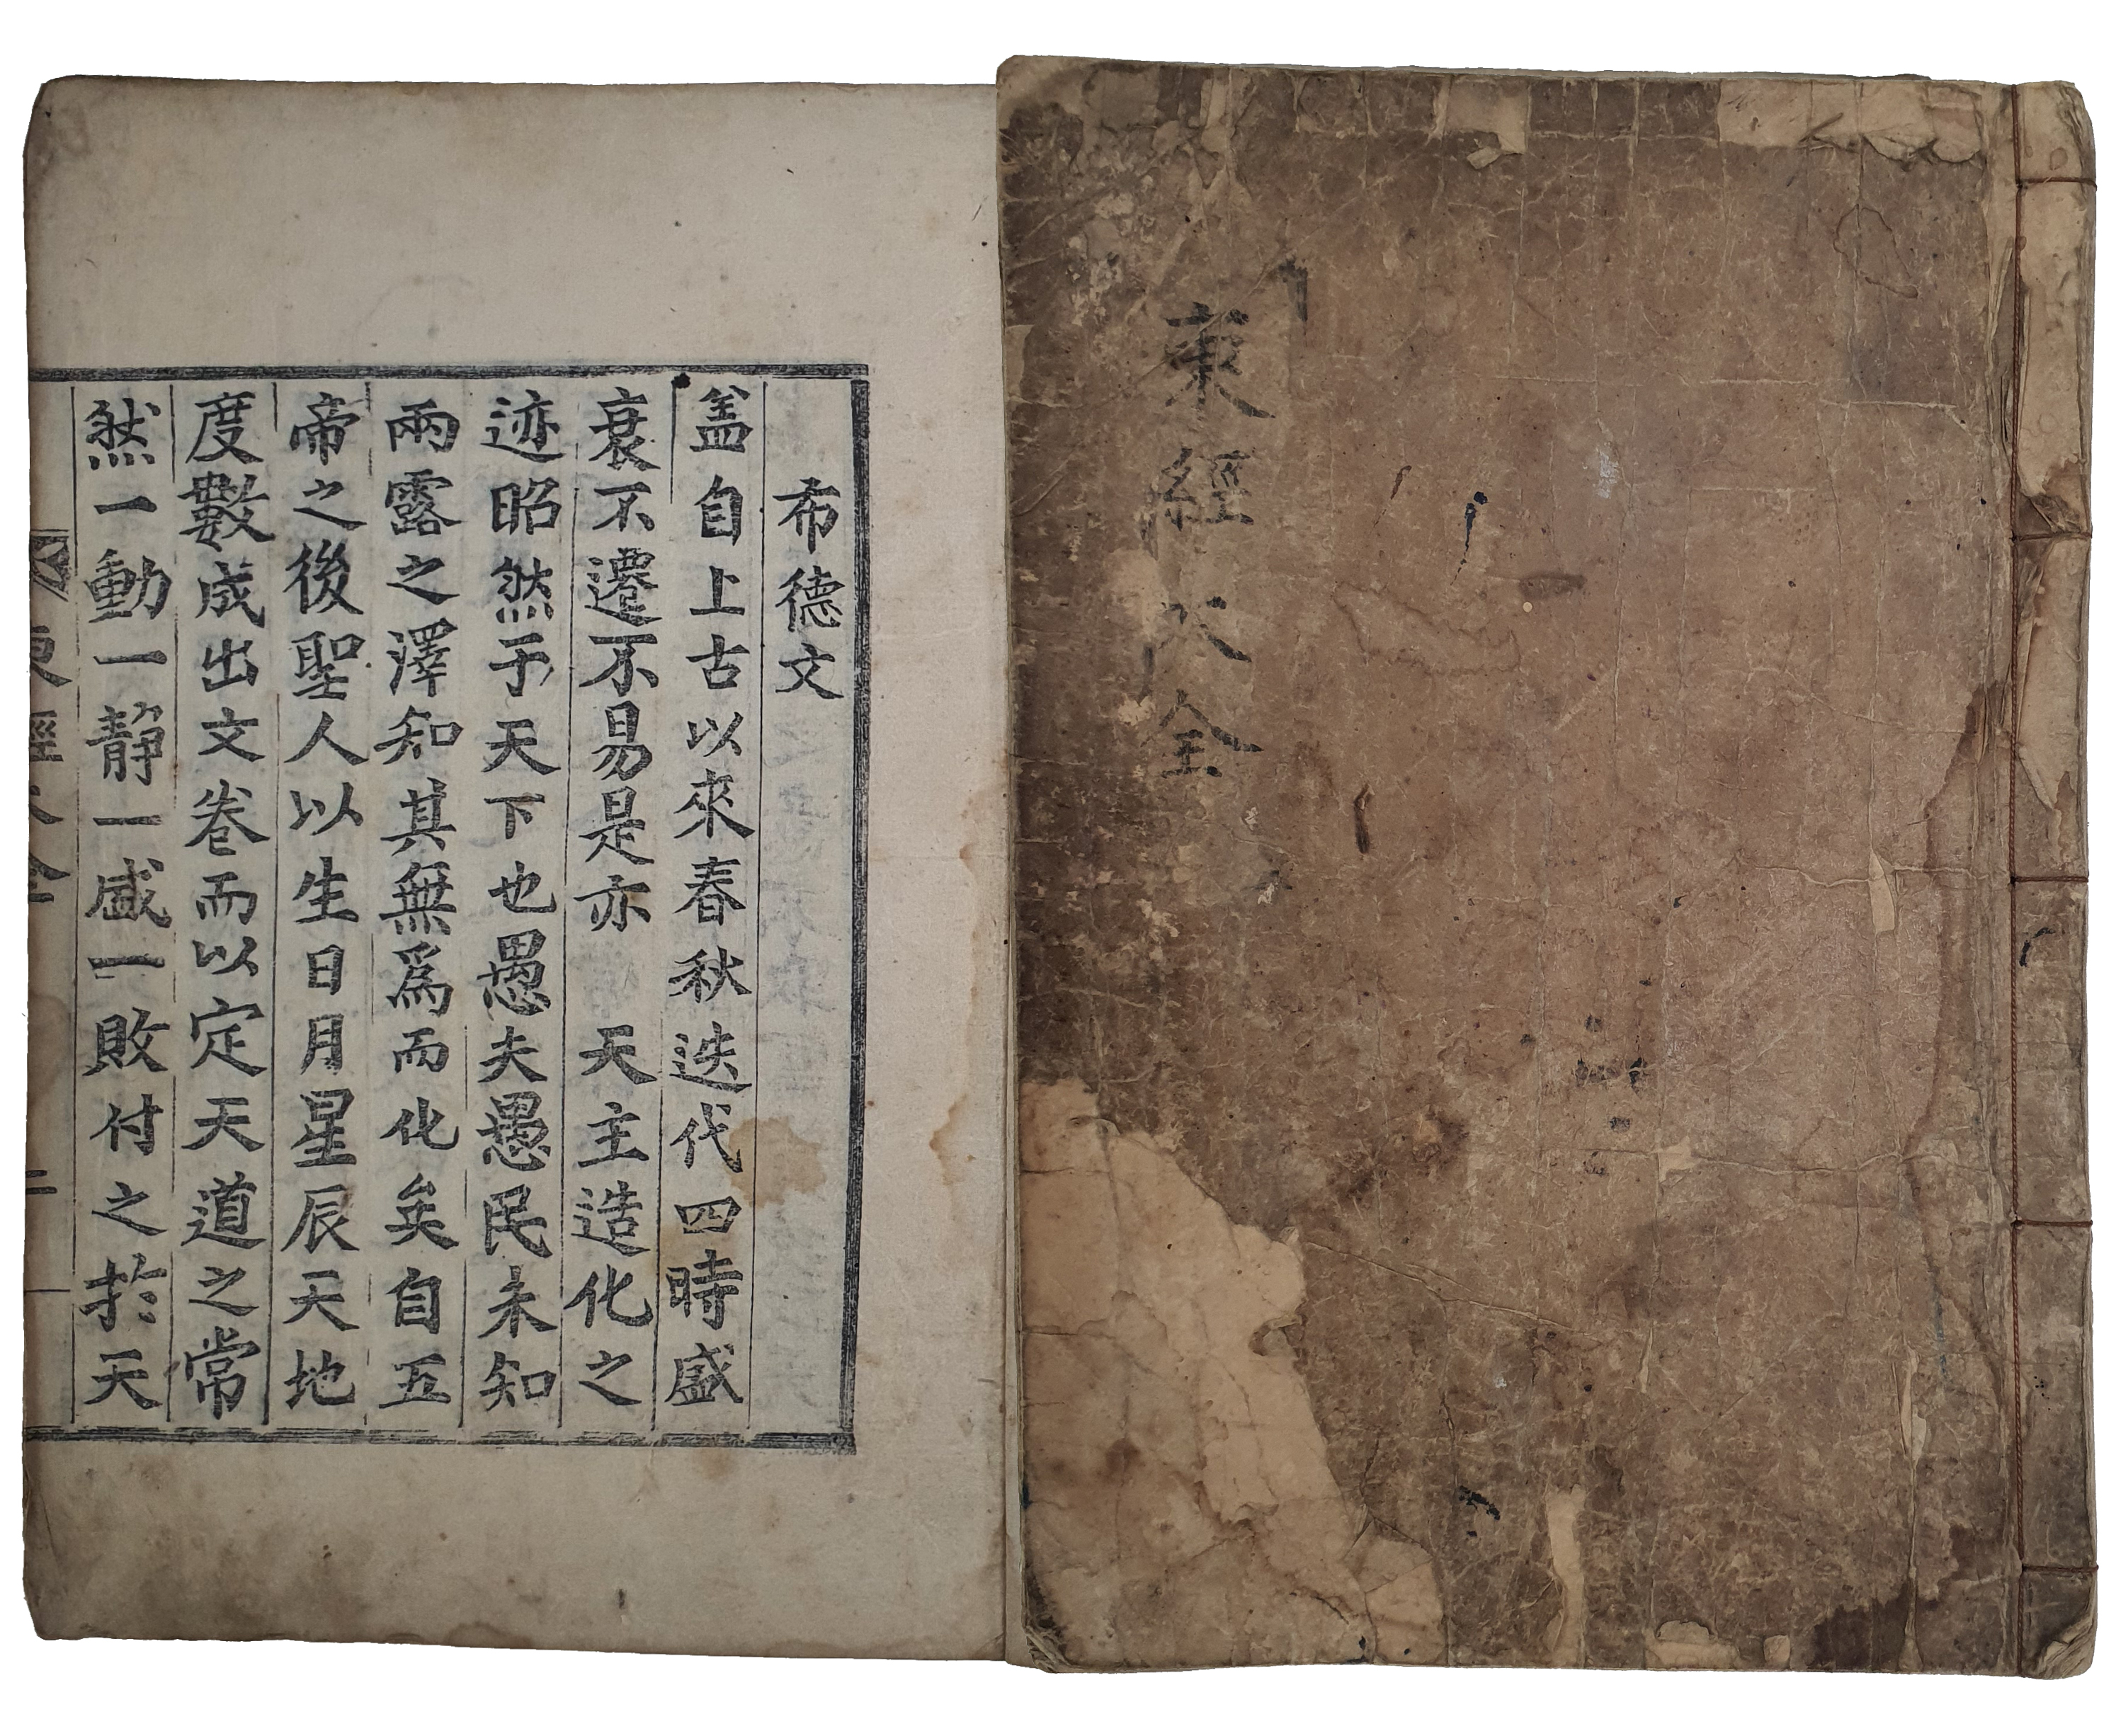 東經大全
布德文
盖自上古以來春秋迭代四時盛
衰不遷不易是亦 天主造化之
迹昭然于天下也愚夫愚民未知
雨露之澤知其無爲而化矣自五
帝之後聖人以生日月星辰天地
度數成出文卷而以定天道之常
然一動一静一盛一敗付之於天
東經大全